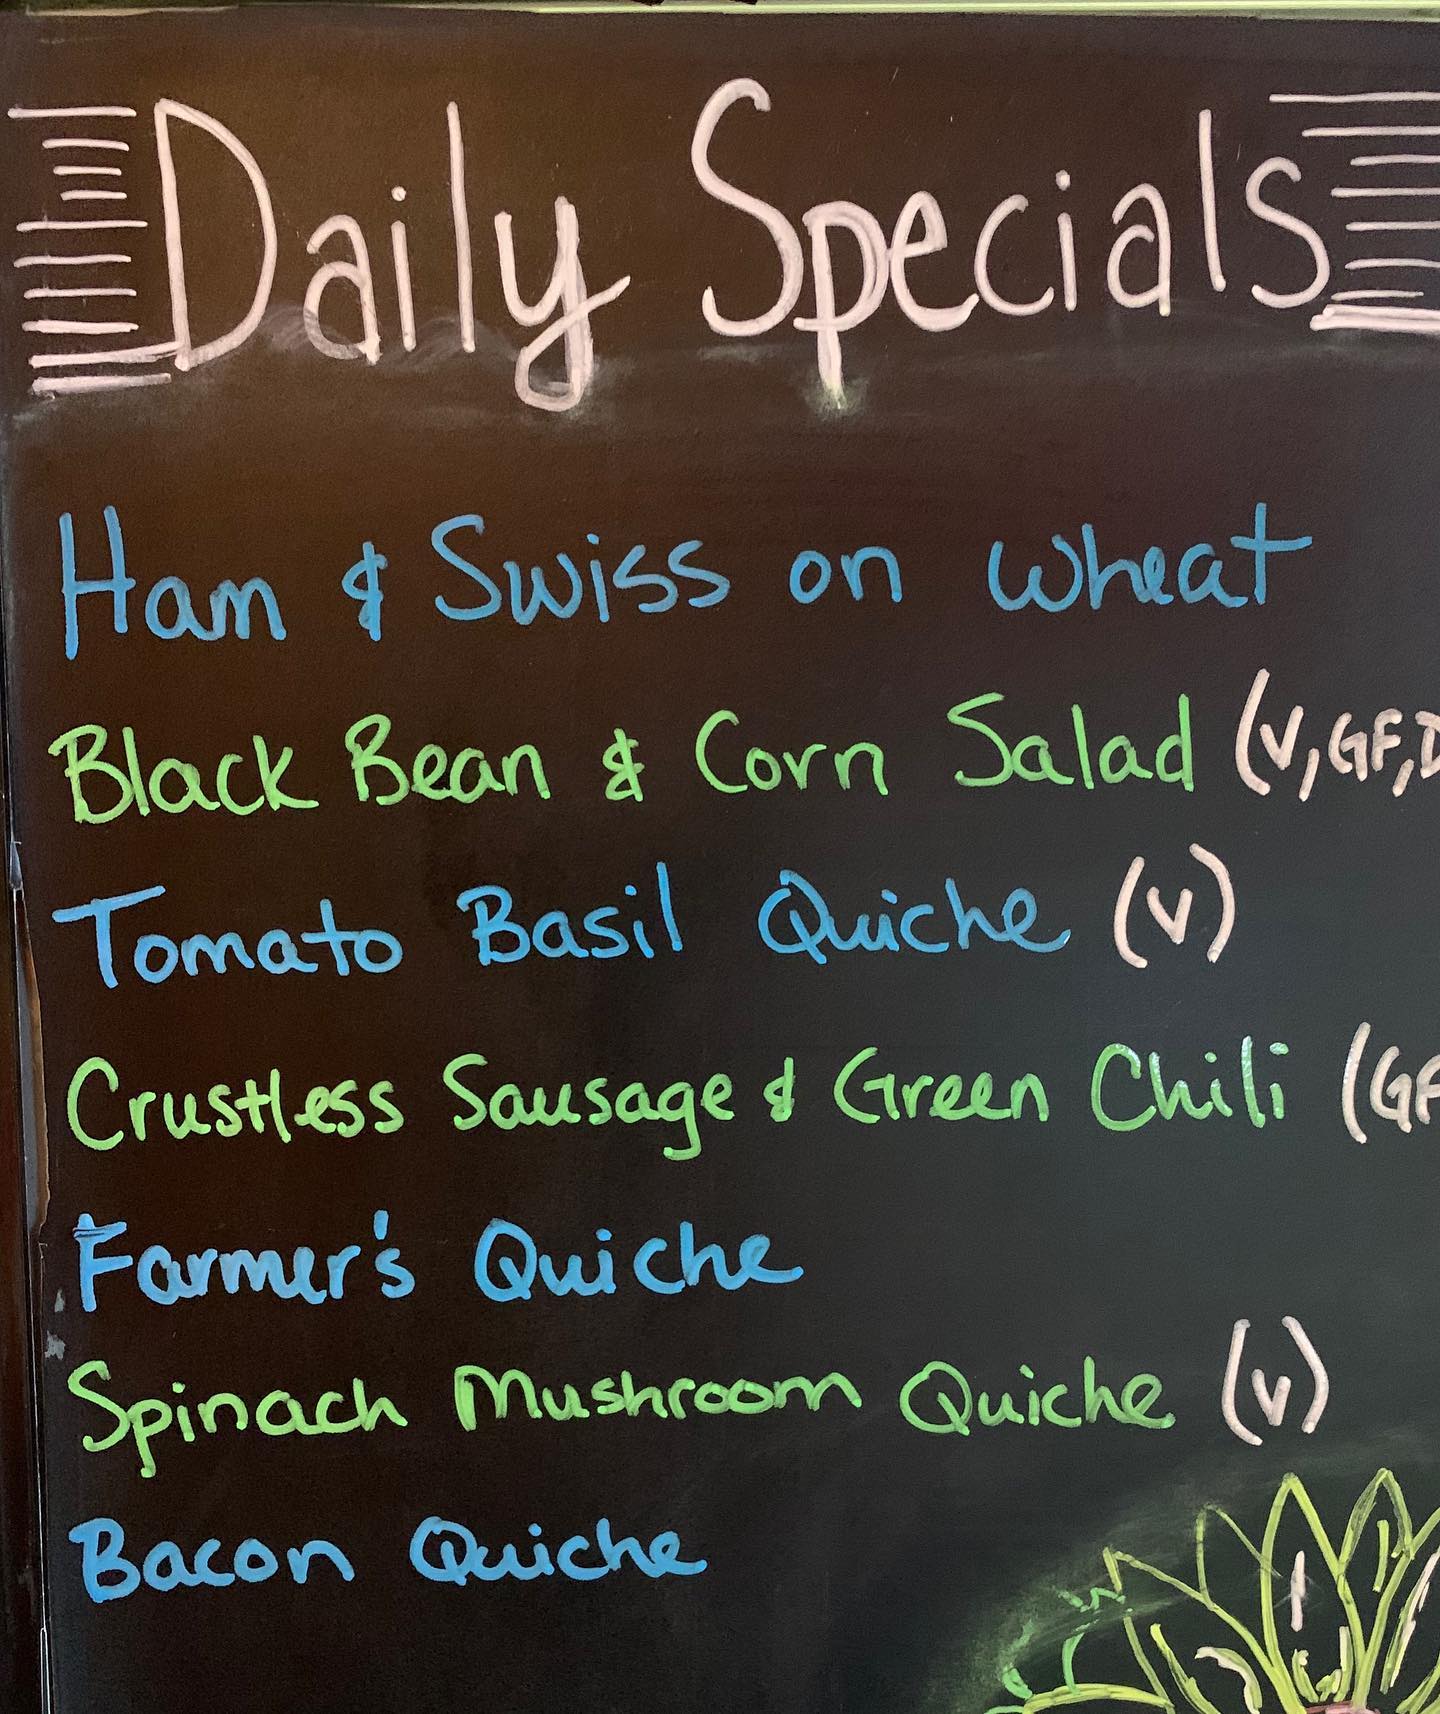 Daily Specials
Ham & Swiss on wheat
Black Bean & Corn Salad (V, GF, D
Tomato Basil Quiche (V)
Crustless Sausage & Green Chili (GF
Farmer's Quiche
Spinach Mushroom Quiche (V)
Bacon Quiche